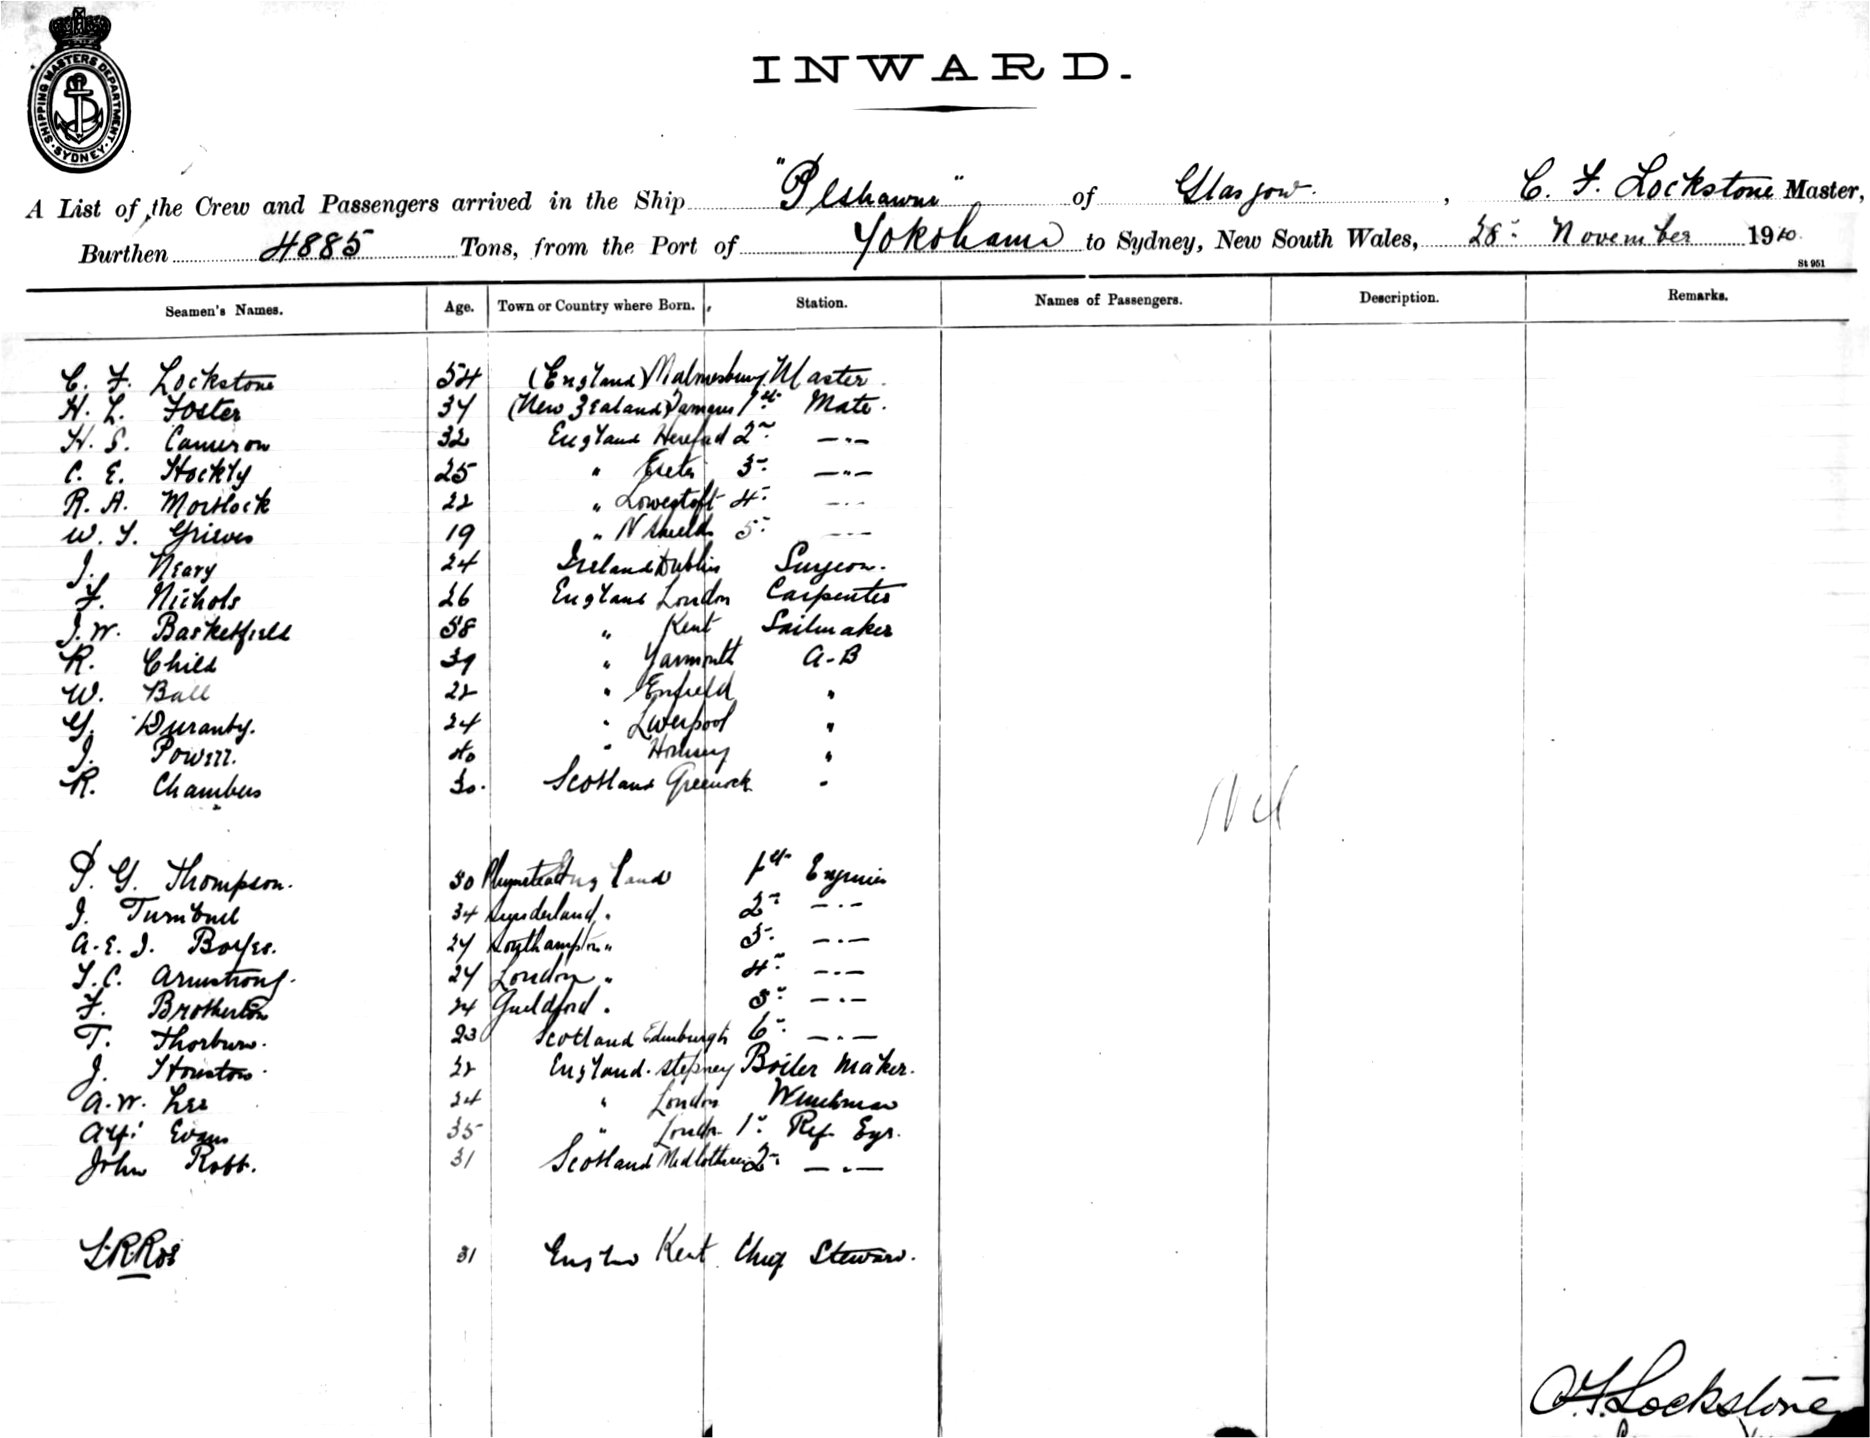 SHIPPING MASTERS DEPARTMENT. SYDNEY.
INWARD.
A List of the Crew and Passengers arrived in the Ship "Peshawur" of Glasgow, C. F. Lockstone Master,
Burthen 4885 Tons, from the Port of Yokohama to Sydney, New South Wales, 28th November 1910.
St 951
Seamen's Names. Age. Town or Country where Born. Station. Names of Passengers. Description. Remarks.
C. F. Lockstone 54 (England) Malmesbury Master
H. L. Foster 37 (New Zealand) 1st Mate.
H. S. Cameron 32 England Hereford 2nd —"—
C. E. Hockly 25 " Exeter 3rd —"—
R. A. Mortlock 22 " Lowestoft 4th —"—
W. T. Grieves 19 " N Shields 5th —"—
J. Neary 24 Ireland Dublin Surgeon.
F. Nichols 26 England London Carpenter
J. W. Basketfield 58 " Kent Sailmaker
R. Child 39 " Yarmouth A-B
W. Ball 22 " Enfield "
G. Duranty. 24 " Liverpool "
J. Powell. 40 " Hornsey "
R. Chambers 30. Scotland Greenock "
Nil
P. G. Thompson. 30 Plumstead England 1st Engineer
J. Turnbull 34 Sunderland " 2nd —"—
A. E. J. Boyes. 27 Southampton " 3rd —"—
T. C. Armstrong. 27 London " 4th —"—
F. Brotherton 24 Guildford " 5th —"—
T. Thorburn. 23 Scotland Edinburgh 6th —"—
J. Houston 22 England. Stepney Boiler Maker.
A. W. Lee 24 " London Winchman
Alf: Evans 35 " London 1st Ref Egr.
John Robb. 31 Scotland Midlothian 2nd —"—
31 England Kent Chief Steward.
C. F. Lockstone